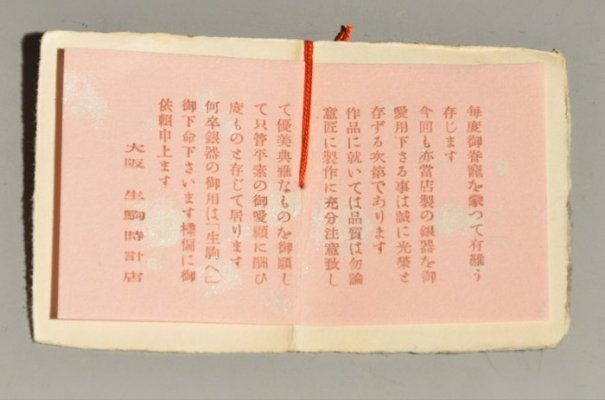 毎度御眷寵を蒙つて有難う
存じます
今回も亦當店製の銀器を御
愛用下さる事は誠に光榮と
存ずる次第であります
作品に就いては品質は勿論
意匠に製作に充分注意致し
て優美典雅なものを御願し
て只管平素の御愛顧に酬ひ
度ものと存じて居ります
何卒銀器の御用は「生駒へ」
御下命下さいます樣偏に御
依頼申上ます
大阪 生駒時計店